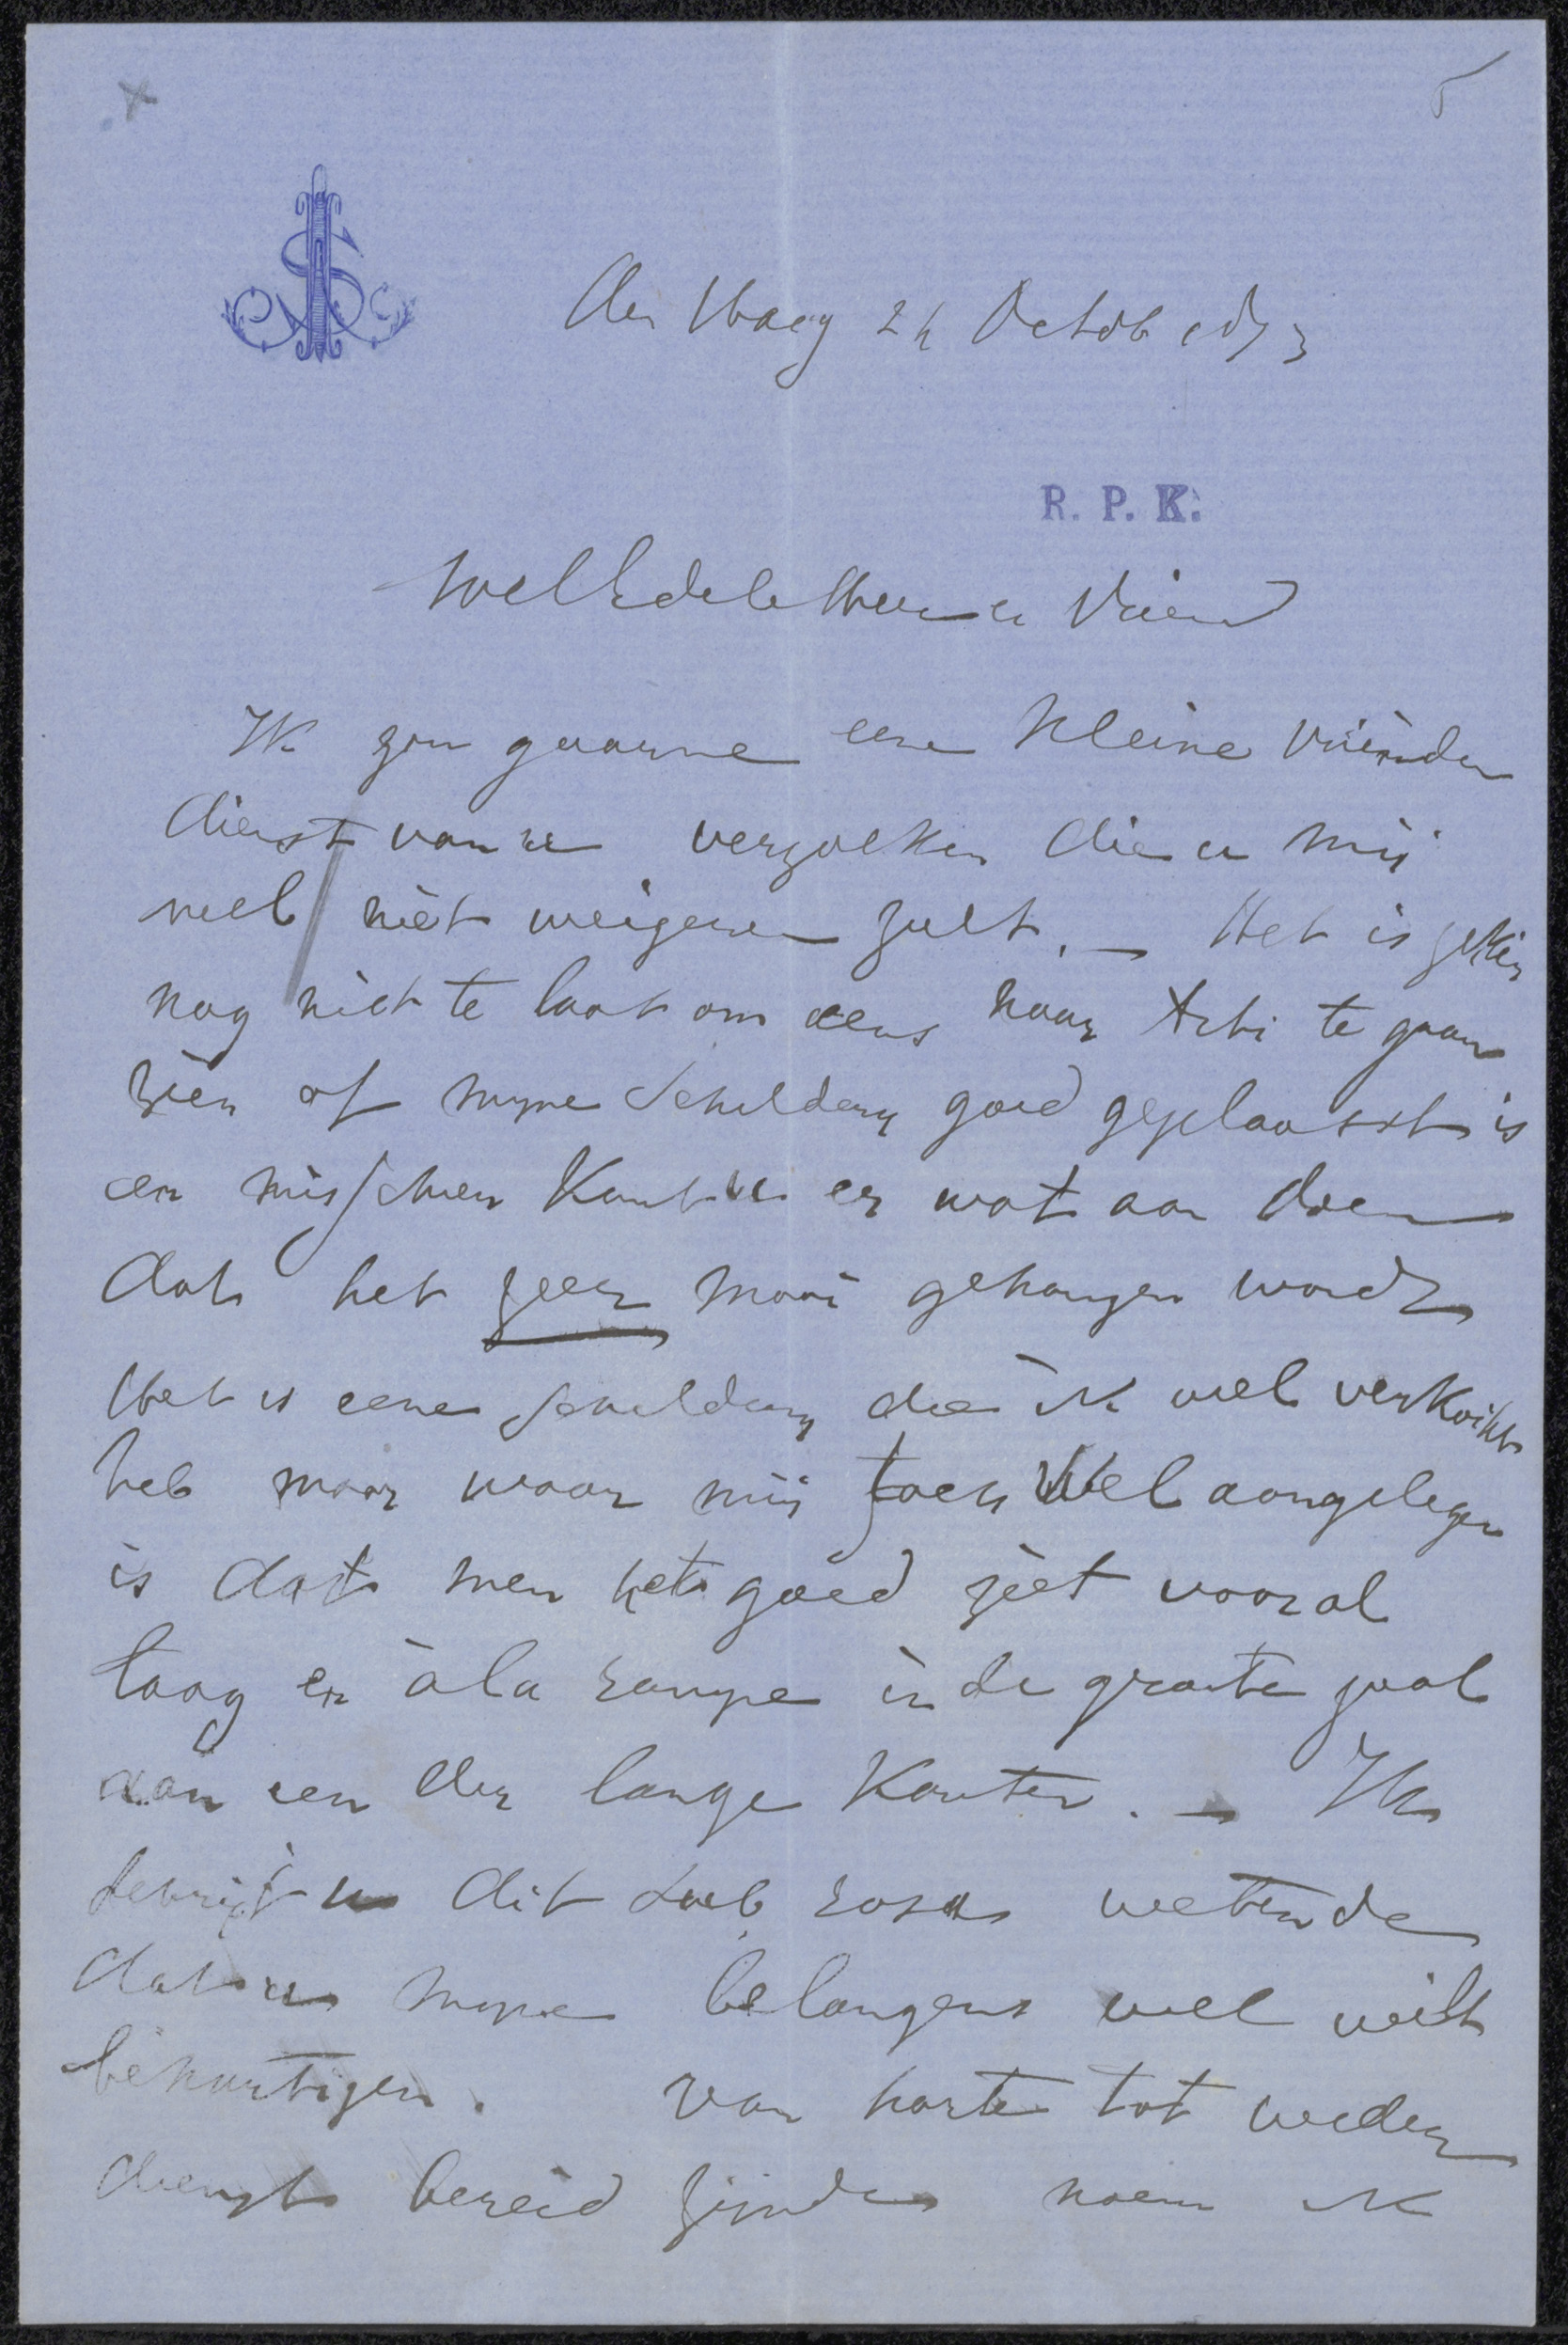 den Haag 24 Octob 1873
R. P. K.
WelEdele Heer en Vriend
Ik zou gaarne eene kleine vrienden
dienst van u verzoeken die u mij
wel niet weigeren zult. – Het is zeker
nog niet te laat om eens naar Arti te gaan
zien of myne Schildery goed geplaatst is
en misschien kunt u er wat aan doen
dat het zeer mooi gehangen wordt
Het is eene schildery die ik wel verkocht
heb maar waar mij toch veel aangelegen
is dat men het goed ziet vooral
laag en à la rampe in de groote zaal
aan een der lange kanten. – Ik
schrijf u dit sub rosa wetende
dat u myne belangens wel wilt
behartigen. van harte tot weder
dienst bereid zijnde noem ik